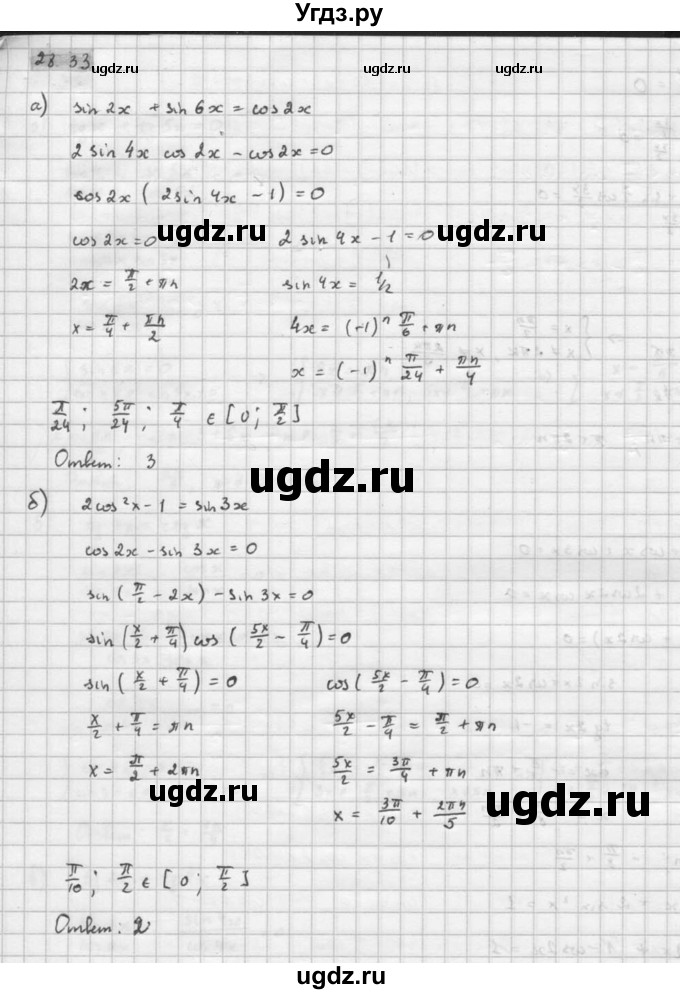 Угдз.ру
28.33
ugdz.ru ugdz.ru ugdz.ru
а) sin 2x + sin 6x = cos 2x
2 sin 4x cos 2x - cos 2x = 0
cos 2x ( 2 sin 4x - 1) = 0
cos 2x = 0 2 sin 4x - 1 = 0
ugdz.ru ugdz.ru
2x = π/2 + πn sin 4x = 1/2
x = π/4 + πn/2 4x = (-1)^n π/6 + πn
ugdz.ru ugdz.ru
x = (-1)^n π/24 + πn/4
π/24 ; 5π/24 ; π/4 ∈ [0 ; π/2]
ugdz.ru
Ответ: 3
ugdz.ru
б) 2cos²x - 1 = sin 3x
cos 2x - sin 3x = 0
sin ( π/2 - 2x ) - sin 3x = 0
ugdz.ru ugdz.ru
sin ( x/2 + π/4 ) cos ( 5x/2 - π/4 ) = 0
sin ( x/2 + π/4 ) = 0 cos ( 5x/2 - π/4 ) = 0
x/2 + π/4 = πn 5x/2 - π/4 = π/2 + πn
x = π/2 + 2πn 5x/2 = 3π/4 + πn
ugdz.ru ugdz.ru
x = 3π/10 + 2πn/5
π/10 ; π/2 ∈ [ 0 ; π/2 ]
ugdz.ru ugdz.ru
Ответ: 2
ugdz.ru
ugdz.ru